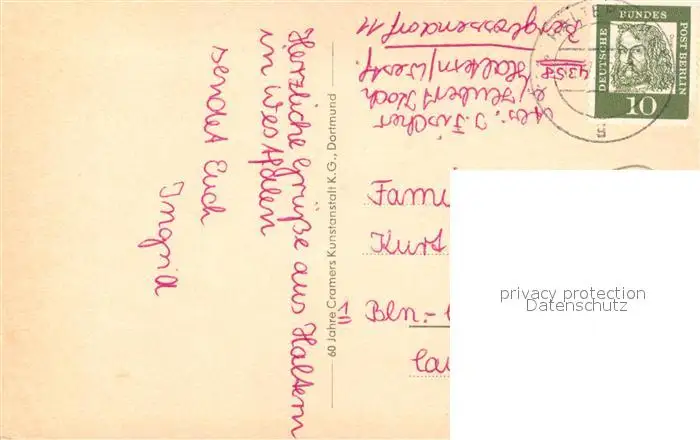 Herzliche Grüße aus Haltern
in Westfalen
sendet Euch
Ingrid
60 Jahre Cramers Kunstanstalt K.G., Dortmund
J. Fischer
b/ Hubert Koch
4358 Haltern/Westf
DEUTSCHE BUNDESPOST BERLIN
10
Kurt
1 Bln.-
privacy protection
Datenschutz